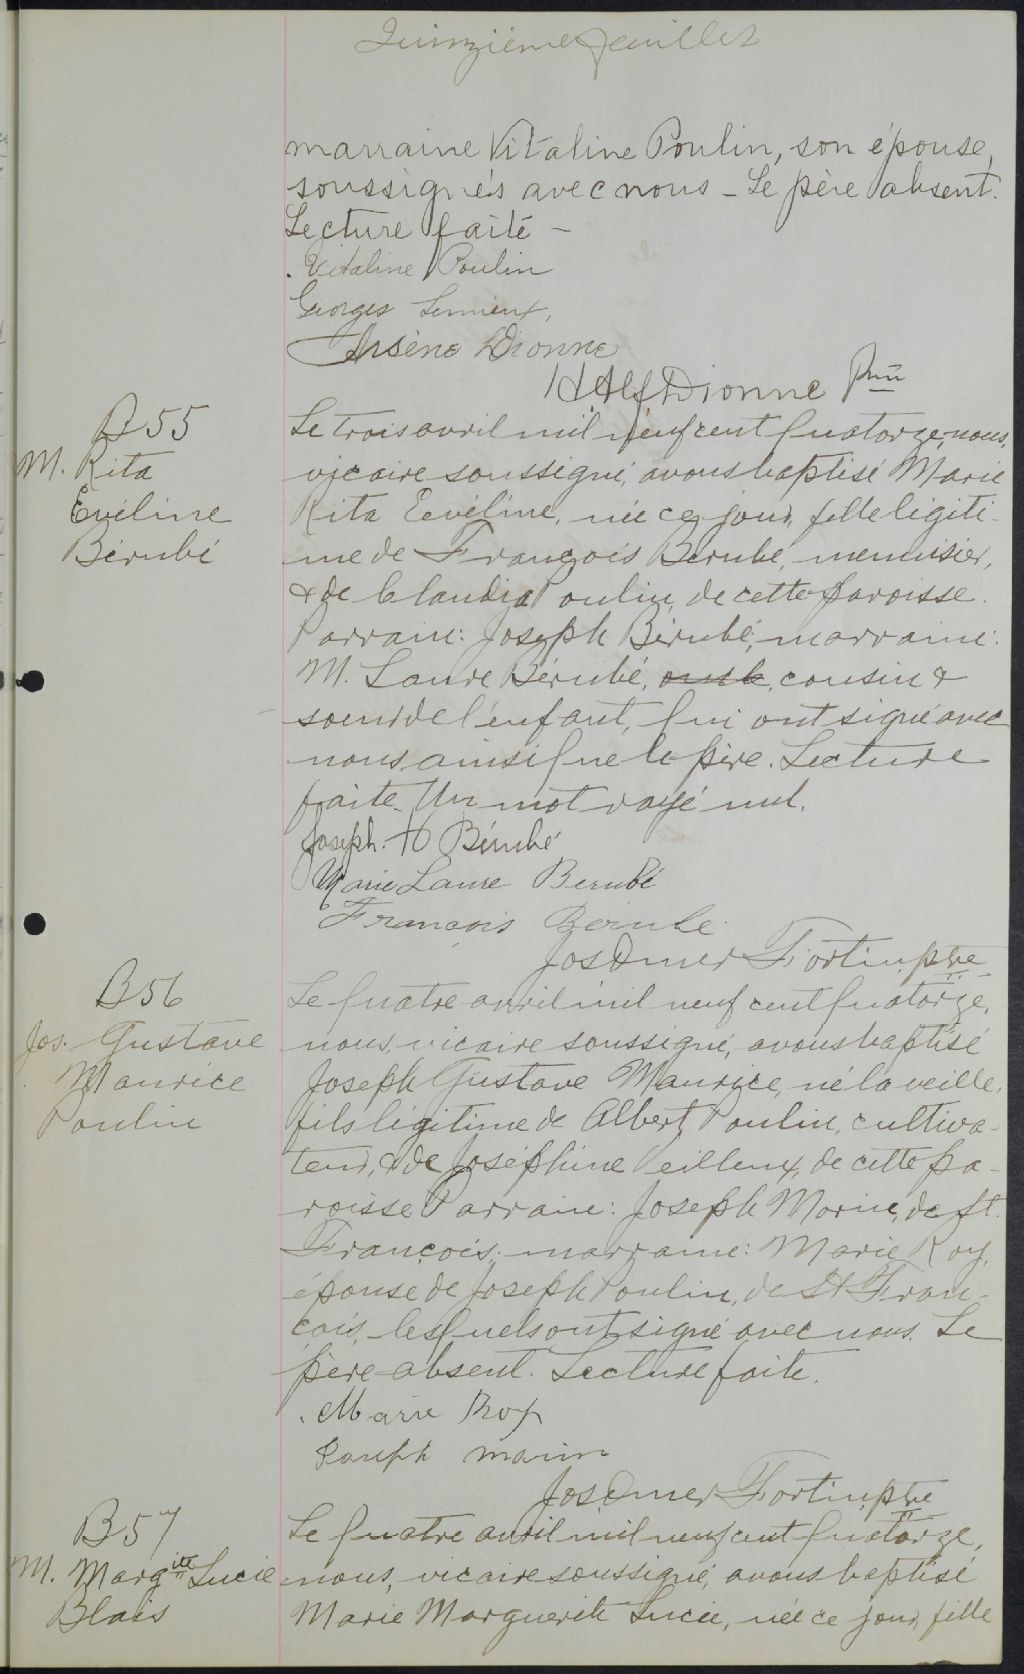 Quinzième feuillet
marraine Vitaline Poulin, son épouse,
soussignés avec nous – Le père absent.
Lecture faite –
Vitaline Poulin
Georges Lemieux,
Arsène Dionne
H Alf Dionne Ptre
B 55
M. Rita
Evéline
Bérubé
Le trois avril mil neuf cent quatorze, nous,
vicaire soussigné, avons baptisé Marie
Rita Eevéline, née ce jour, fille légiti-
me de François Bérubé, menuisier,
& de Claudia Poulin, de cette paroisse.
Parrain: Joseph Bérubé; marraine:
M. Laure Bérubé, cousin &
soeur de l'enfant, qui ont signé avec
nous ainsi que le père. Lecture
faite. Un mot rayé nul.
Joseph. O Bérubé
Marie Laure Berubé
François Berube
Jos Omer Fortin, ptre
B 56
Jos. Gustave
Maurice
Poulin
Le quatre avril mil neuf cent quatorze,
nous, vicaire soussigné, avons baptisé
Joseph Gustave Maurice, né la veille,
fils légitime de Albert Poulin, cultiva-
teur, & de Joséphine Veilleux, de cette pa-
roisse Parrain: Joseph Morin, de St.
François; marraine: Marie Roy,
épouse de Joseph Poulin, de St Fran-
çois, lesquels ont signé avec nous. Le
père absent. Lecture faite.
Marie Roy
Joseph morin
Jos Omer Fortin, ptre
B 57
M. Margite Lucie
Blais
Le quatre avril mil neuf cent quatorze,
nous, vicaire soussigné, avons baptisé
Marie Marguerite Lucie, née ce jour, fille